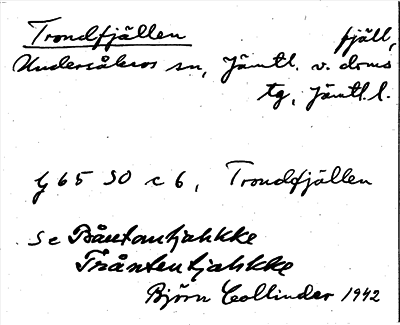 Trondfjällen fjäll,
Undersåkers sn, Jämtl. v. doms
tg, Jämtl. l.
G 65 SO c 6, Trondfjällen
Se Båntantjahkke
Tråntentjahkke
Björn Collinder 1942